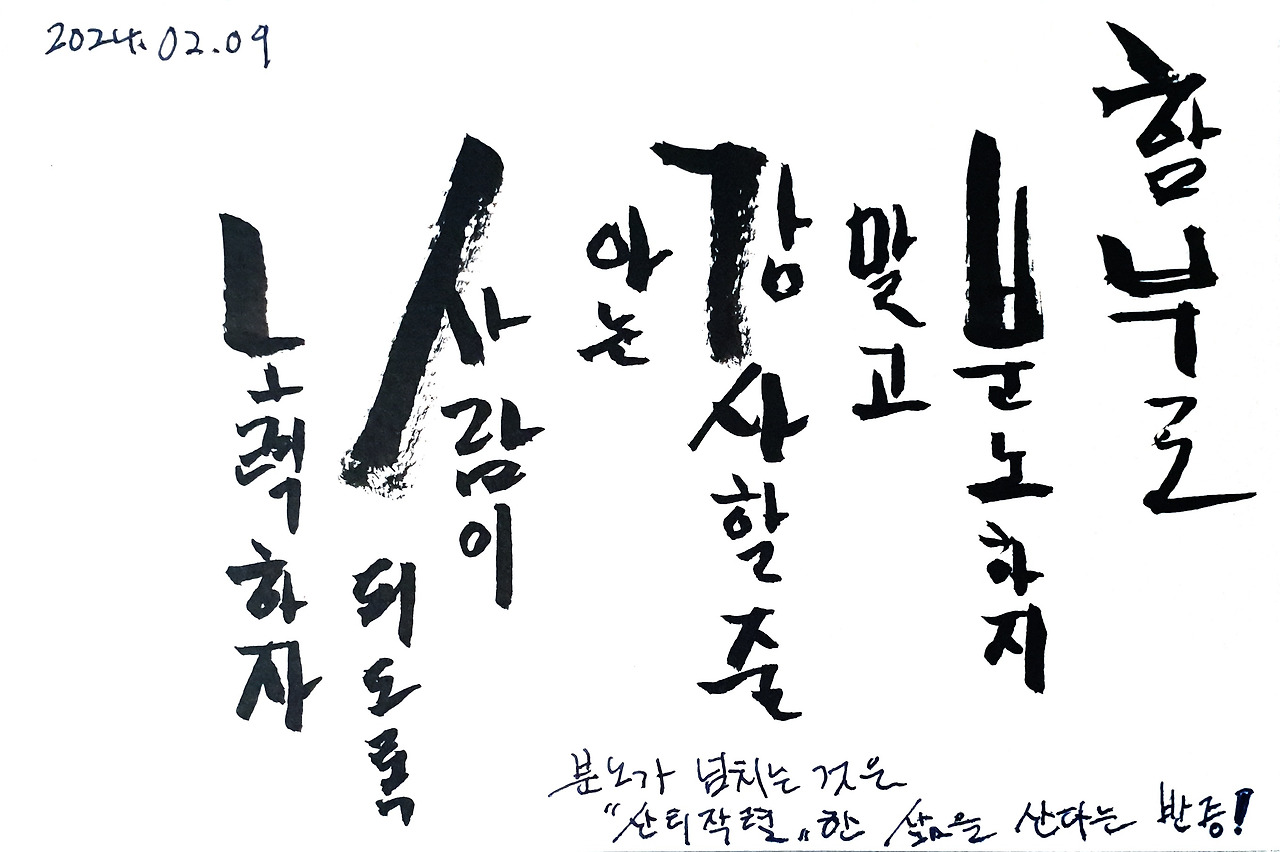 2024.02.09
함부로
분노하지
말고
감사할줄
아는
사람이
되도록
노력하자
분노가 넘치는 것은
"산티작렬"한 삶을 산다는 반증!